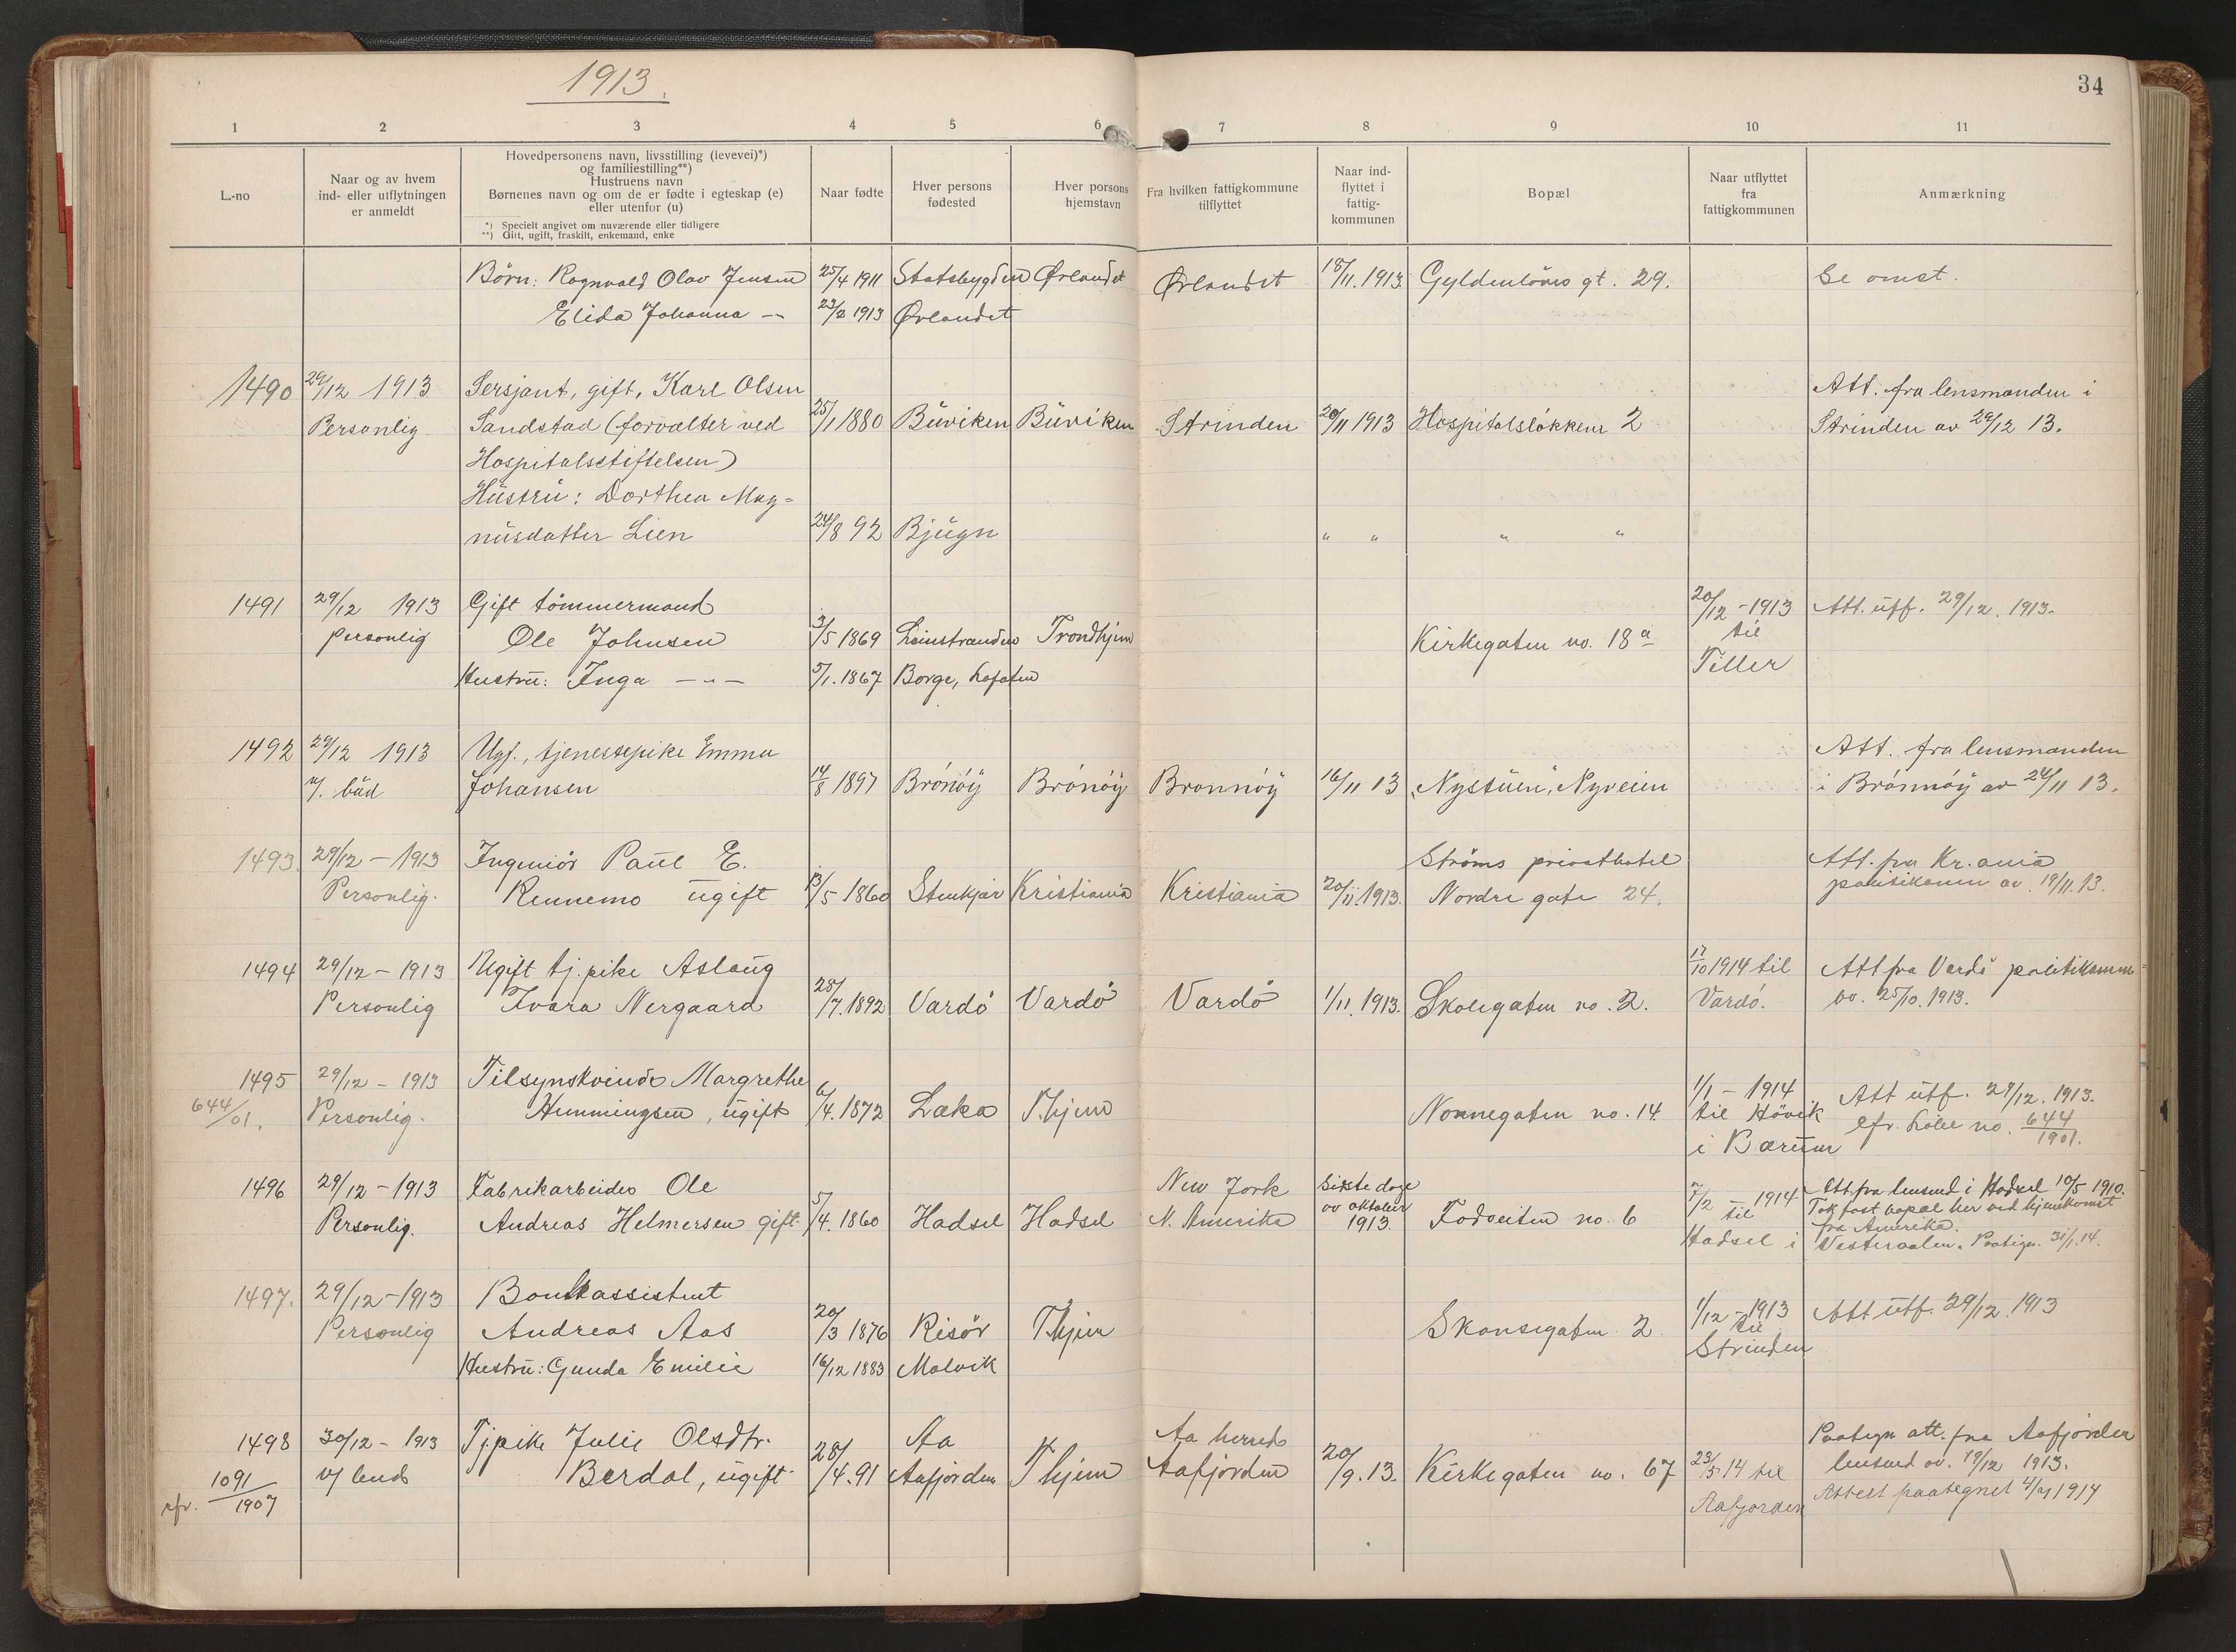 1913.
34
1 2 3 4 5 6 7 8 9 10 11
L.-no
Naar og av hvem
ind- eller utflytningen
er anmeldt
Hovedpersonens navn, livsstilling (levevei)*)
og familiestilling**)
Hustruens navn
Børnenes navn og om de er fødte i egteskap (e)
eller utenfor (u)
*) Specielt angivet om nuværende eller tidligere
**) Gift, ugift, fraskilt, enkemand, enke
Naar fødte
Hver persons
fødested
Hver persons
hjemstavn
Fra hvilken fattigkommune
tilflyttet
Naar ind-
flyttet i
fattig-
kommunen
Bopæl
Naar utflyttet
fra
fattigkommunen
Anmærkning
Børn: Ragnvald Olav Jensen 25/4 1911 Statsbygden Ørlandet Ørlandet 18/11. 1913. Gyldenløves gt. 29. Se omst.
Elida Johanna -"- 23/2 1913 Ørlandet
1490 29/12 1913 Sersjant, gift, Karl Olsen Att. fra lensmanden i
Personlig Sandstad (forvalter ved 25/1 1880 Büviken Büviken Strinden 20/11 1913 Hospitalsløkken 2 Strinden av 29/12 13.
Hospitalsstiftelsen)
Hüstrü: Dorthea Mag=
nüsdatter Lien 24/8 92 Bjügn " " " "
1491 29/12 1913 Gift tømmermand 20/12 - 1913 Att. ütf. 29/12. 1913.
personlig Ole Johnsen 3/5 1869 Leinstranden Trondhjem Kirkegaten no. 18a til
Hustrü: Inga -"- 5/1. 1867 Borge, Lofoten Tiller
1492 29/12 1913 Ugf., tjenestepike Emma Att. fra lensmanden
v/. büd Johansen 14/8 1897 Brønøÿ Brønøÿ Brønnøÿ 16/11 13 "Nystüen", Nyveien i Brønnøÿ av 24/11 13.
1493. 29/12 - 1913 Ingeniør Paül E. Strøms privathotel Att. fra Kr.ania
Personlig. Rennemo ügift 13/5 1860 Stenkjær Kristiania Kristiania 20/11. 1913. Nordre gate 24. politikamm av. 19/11. 13.
1494 29/12 - 1913 Ugift tj.pike Aslaüg 17/10 1914 til Att fra Vardø politikamm=
Personlig Ivara Nergaard 28/7. 1892 Vardø Vardø Vardø 1/11. 1913. Skolegaten no. 2. Vardø. av. 25/10. 1913.
1495 29/12 - 1913 Tilsynskvinde Margrethe 1/1 - 1914 Att ütf. 29/12. 1913.
644/01. Personlig. Hemmingsen, ügift 6/4. 1872 Leka T.hjem Nonnegaten no. 14. til Høvik cfr. Løbe no. 644/1901.
i Bærüm
1496 29/12 - 1913 Fabrikarbeider Ole New York Sikste dage 7/2 - 1914 Att. fra lensmd i Hadsel 10/5 1910.
Personlig. Andreas Helmersen gift. 5/4. 1860 Hadsel Hadsel N. Amerika av oktober 1913. Fodveiten no. 6 til Tok fast bopæl her ved hjemkomst
fra Amerika.
Hadsel i Vesteraalen. Paategn. 31/1. 14.
1497. 29/12 - 1913 Bankassistent 1/12 - 1913 Att ütf. 29/12. 1913
Personlig Andreas Aas 20/3 1876 Risør T.hjem Skansegaten 2. til
Hustrü: Gunda Emilie 16/12 1883 Malvik Strinden
1498 30/12 - 1913 Tjpike Julie Olsdtr. Aa Aa herred Paategn att. fra Aafjorden
v/ lensd Berdal, ügift. 28/4. 91 Aafjorden T.hjem Aafjorden 20/9. 13. Kirkegaten no. 67 23/5 14 til lensmd av. 19/12 1913.
cfr. 1091/1907 Aafjorden Attest paategnet 1914